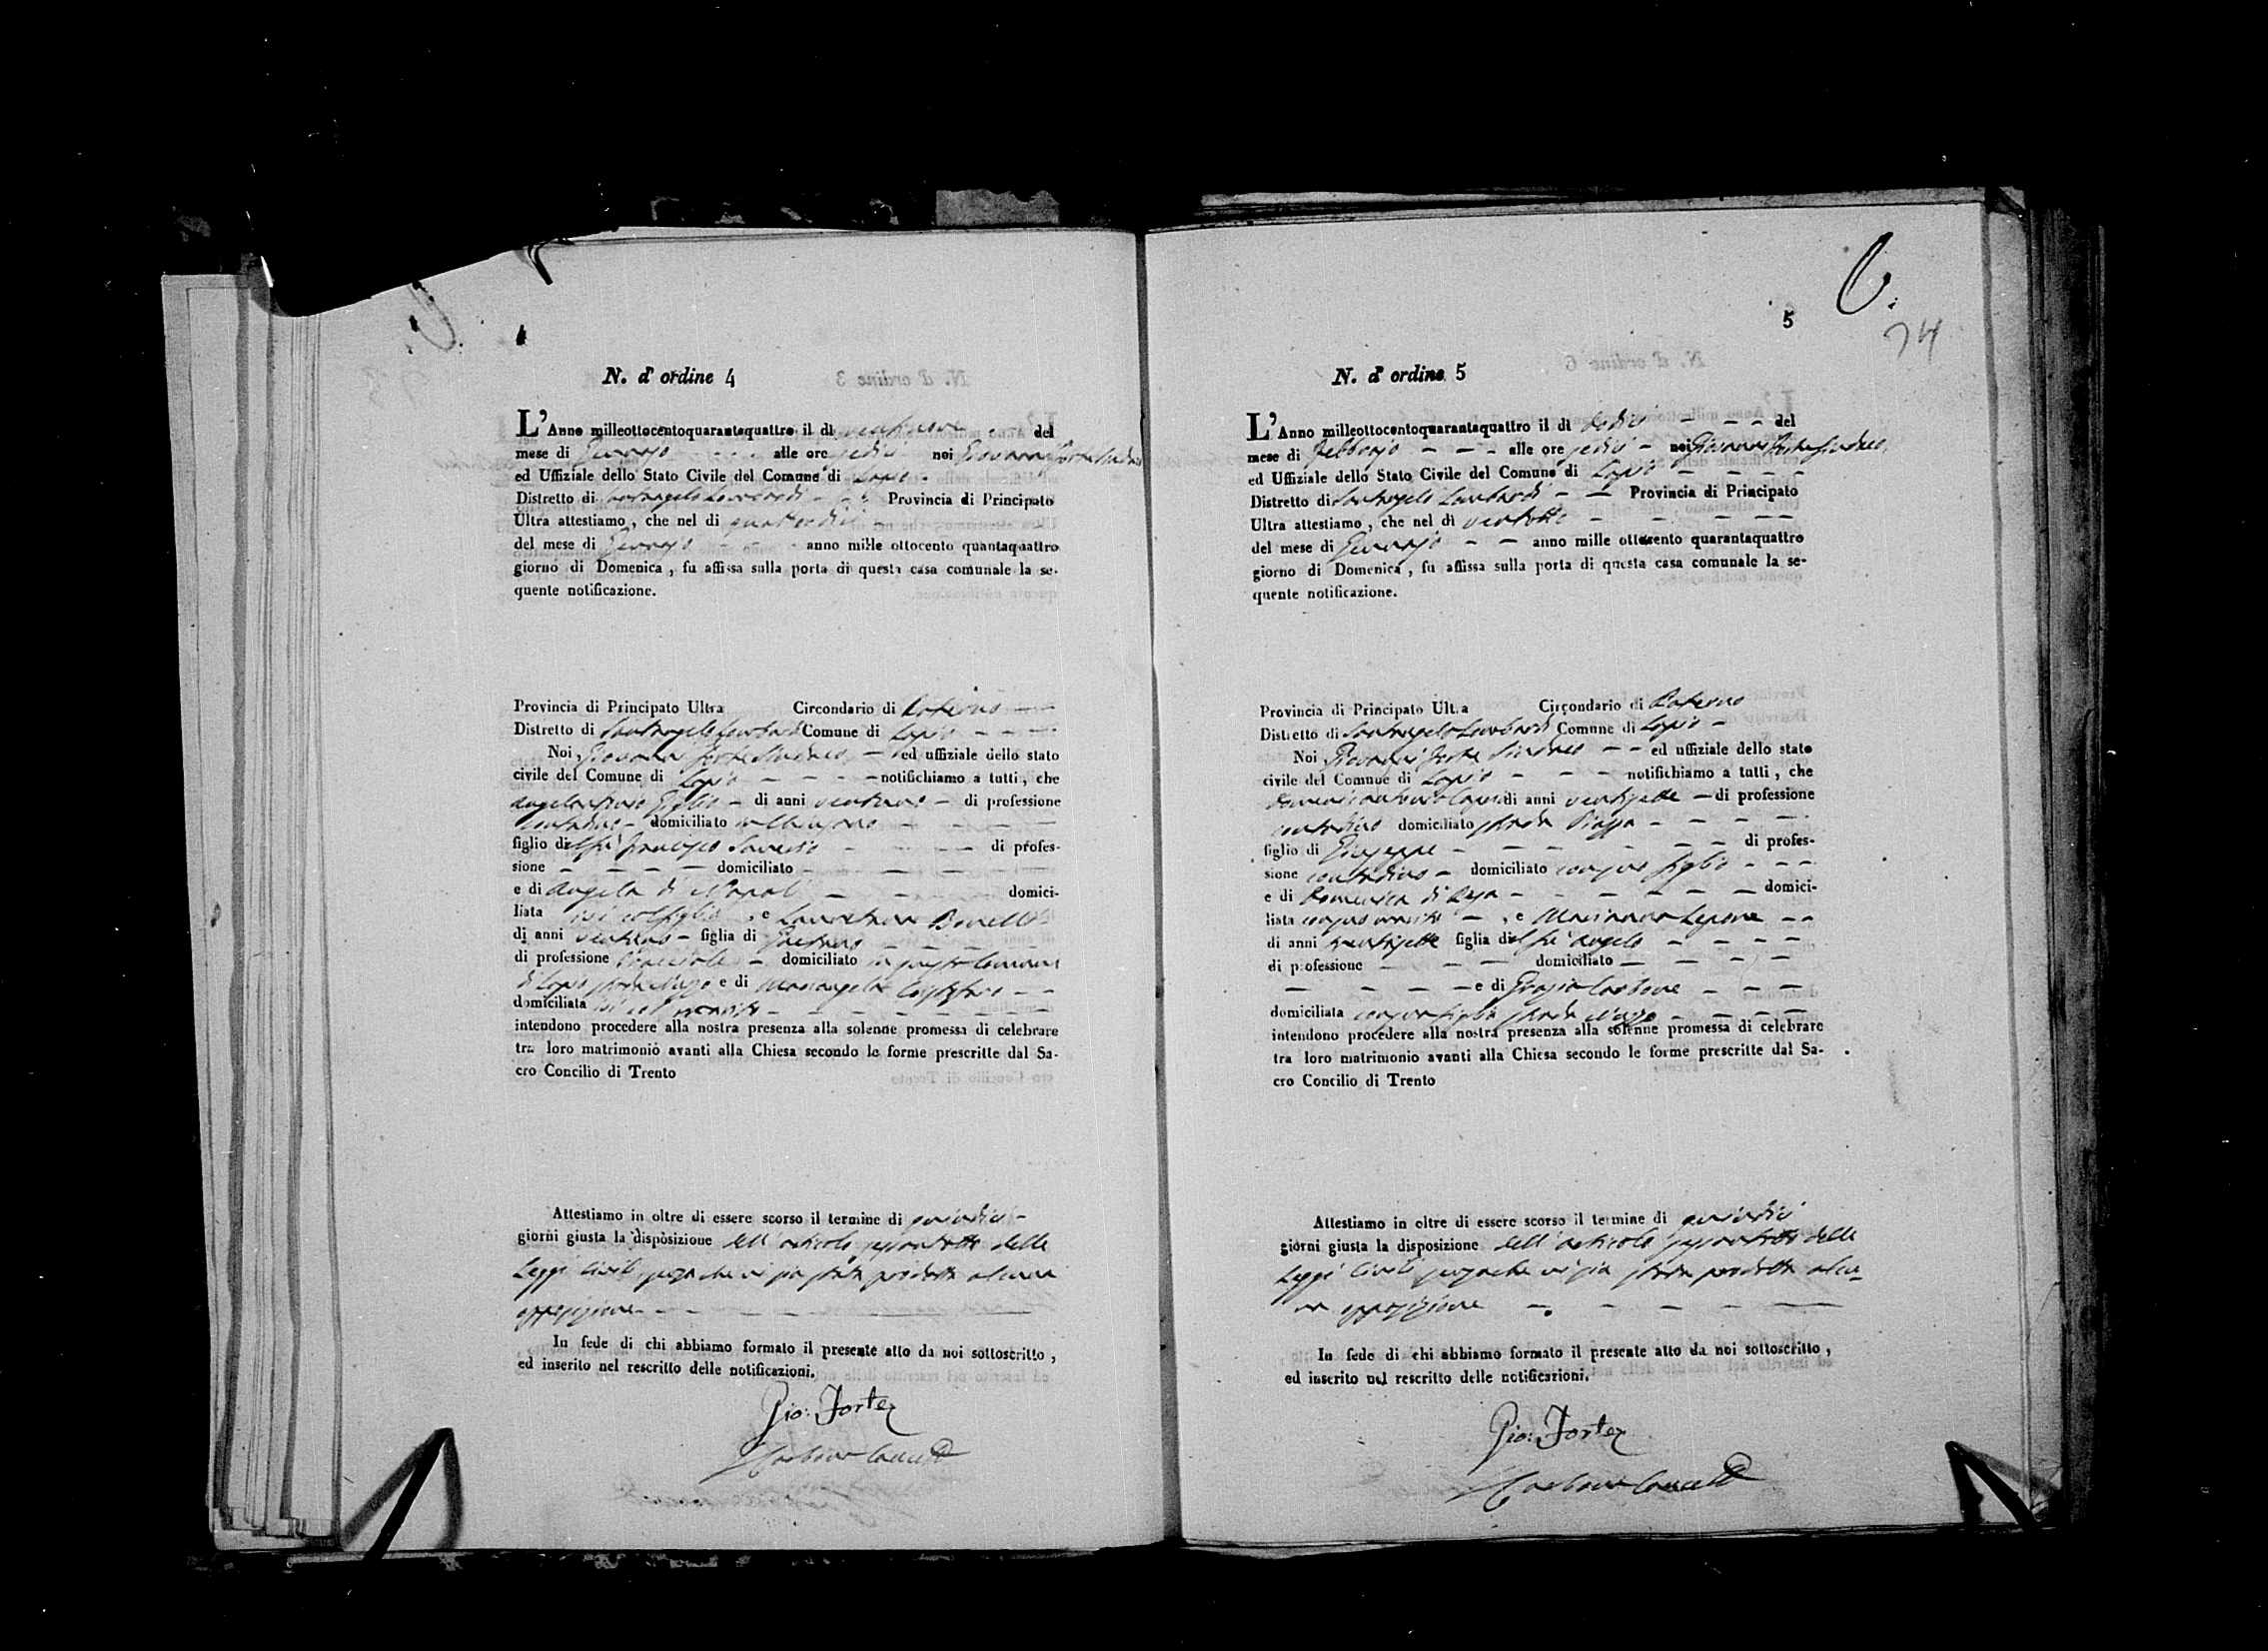 4
N. d' ordine 4
L'Anno milleottocentoquarantaquattro il dì ventinove del
mese di Gennajo alle ore sedici noi Giovanni Forte Sindaco
ed Uffiziale dello Stato Civile del Comune di Lapio
Distretto di Santangelo Lombardi Provincia di Principato
Ultra attestiamo, che nel di quattordici
del mese di Gennajo anno mille ottocento quantaquattro
giorno di Domenica, fu affissa sulla porta di questa casa comunale la se-
quente notificazione.
Provincia di Principato Ultra Circondario di Paterno
Distretto di Santangelo Lombardi Comune di Lapio
Noi Giovanni Forte Sindaco ed uffiziale dello stato
civile del Comune di Lapio notifichiamo a tutti, che
di anni ventuno di professione
contadino domiciliato
figlio di del fu Francesco Saverio di profes-
sione domiciliato
e di Angela di Napoli domici-
liata ivi col figlio, e
di anni ventuno figlia di Gaetano
di professione domiciliato in questo Comune
di Lapio strada e di Mariangela
domiciliata ivi col marito
intendono procedere alla nostra presenza alla solenne promessa di celebrare
tra loro matrimonio avanti alla Chiesa secondo le forme prescritte dal Sa-
cro Concilio di Trento
Attestiamo in oltre di essere scorso il termine di quindici
giorni giusta la disposizione dell'articolo sessantotto delle
Leggi Civili, senza che vi sia stata prodotta alcuna
opposizione
In fede di chi abbiamo formato il presente atto da noi sottoscritto,
ed inserito nel rescritto delle notificazioni.
Gio: Forte
6.
74
5
N. d' ordine 5
L'Anno milleottocentoquarantaquattro il dì dodici del
mese di Febbrajo alle ore sedici noi Giovanni Forte Sindaco
ed Uffiziale dello Stato Civile del Comune di Lapio
Distretto di Santangelo Lombardi Provincia di Principato
Ultra attestiamo, che nel dì ventotto
del mese di Gennajo anno mille ottocento quarantaquattro
giorno di Domenica, fu affissa sulla porta di questa casa comunale la se-
quente notificazione.
Provincia di Principato Ultra Circondario di Paterno
Distretto di Santangelo Lombardi Comune di Lapio
Noi Giovanni Forte Sindaco ed uffiziale dello stato
civile del Comune di Lapio notifichiamo a tutti, che
di anni ventisette di professione
contadino domiciliato strada Piazza
figlio di Giuseppe di profes-
sione contadino domiciliato come suo figlio
e di Domenica di domici-
liata come suo marito, e Marianna
di anni ventisette figlia di del fu Angelo
di professione domiciliato
e di Grazia Carbone
domiciliata con sua figlia strada
intendono procedere alla nostra presenza alla solenne promessa di celebrare
tra loro matrimonio avanti alla Chiesa secondo le forme prescritte dal Sa-
cro Concilio di Trento
Attestiamo in oltre di essere scorso il termine di quindici
giorni giusta la disposizione dell'articolo sessantotto delle
Leggi Civili senza che vi sia stata prodotta alcu-
na opposizione
In fede di chi abbiamo formato il presente atto da noi sottoscritto,
ed inserito nel rescritto delle notificazioni.
Gio: Forte